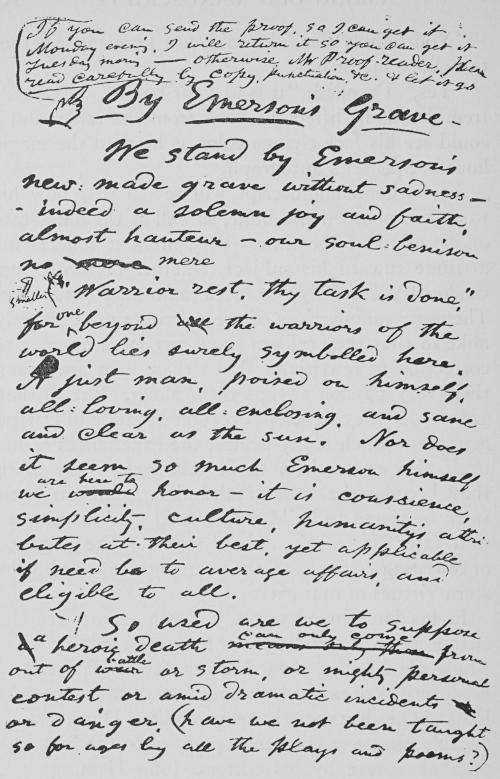 If you can send the proof, so I can get it
Monday even'g, I will return it so you can get it
Tuesday morn'g — otherwise Mr Proof-reader, please
read carefully by copy, punctuation, &c. & let it go
By Emerson's Grave.
We stand by Emerson's
new-made grave without sadness —
indeed a solemn joy and faith,
almost hauteur — our soul-benison
no mere mere
smaller "Warrior rest, thy task is done"
for one beyond all the warriors of the
world lies surely symbolled here.
A just man, poised on himself,
all-loving, all-enclosing, and sane
and clear as the sun. Nor does
it seem so much Emerson himself
we are here to honor — it is conscience,
simplicity, culture, humanity's attri-
butes at their best, yet applicable
if need be to average affairs, and
eligible to all.
So used are we to suppose
a heroic death can only come from
out of battle or storm, or mighty personal
contest or amid dramatic incidents
or danger, (have we not been taught
so for ages by all the plays and poems?)